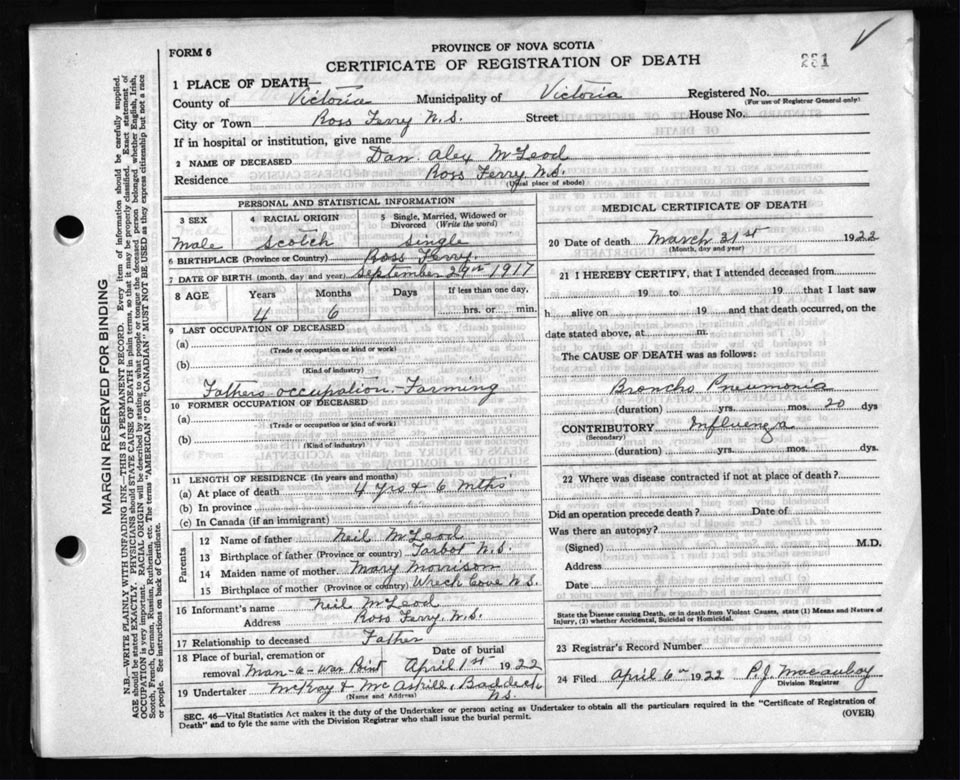 FORM 6
PROVINCE OF NOVA SCOTIA
CERTIFICATE OF REGISTRATION OF DEATH
231
1 PLACE OF DEATH—
County of Victoria Municipality of Victoria Registered No.
(For use of Registrar General only)
City or Town Ross Ferry N.S. Street House No.
If in hospital or institution, give name
2 NAME OF DECEASED Dan. Alex McLeod
Residence Ross Ferry N.S.
(Usual place of abode)
PERSONAL AND STATISTICAL INFORMATION
3 SEX 4 RACIAL ORIGIN 5 Single, Married, Widowed or Divorced (Write the word)
Male Scotch single
6 BIRTHPLACE (Province or Country) Ross Ferry.
7 DATE OF BIRTH (month, day and year) September 29th 1917
8 AGE Years Months Days If less than one day,
4 6 hrs. or min.
9 LAST OCCUPATION OF DECEASED
(a)
(Trade or occupation or kind or work)
(b)
(Kind of industry)
Fathers occupation - Farming
10 FORMER OCCUPATION OF DECEASED
(a)
(Trade or occupation or kind of work)
(b)
(Kind of industry)
11 LENGTH OF RESIDENCE (In years and months)
(a) At place of death 4 yrs & 6 mths
(b) In province
(c) In Canada (if an immigrant)
Parents
12 Name of father Neil McLeod
13 Birthplace of father (Province or country) Tarbot N.S.
14 Maiden name of mother Mary Morrison
15 Birthplace of mother (Province or country) Wreck Cove N.S.
16 Informant's name Neil McLeod
Address Ross Ferry, N.S.
17 Relationship to deceased Father
18 Place of burial, cremation or removal Man-o-war Point Date of burial April 1st 1922
19 Undertaker McKay & McAskill, Baddeck N.S.
(Name and Address)
MEDICAL CERTIFICATE OF DEATH
20 Date of death March 31st 1922
(Month, day and year)
21 I HEREBY CERTIFY, that I attended deceased from
19 to 19 that I last saw
h alive on 19 and that death occurred, on the
date stated above, at m.
The CAUSE OF DEATH was as follows:
Broncho Pneumonia
(duration) yrs. mos. 20 dys
CONTRIBUTORY Influenza
(Secondary)
(duration) yrs. mos. dys.
22 Where was disease contracted if not at place of death?
Did an operation precede death? Date of
Was there an autopsy?
(Signed) M.D.
Address
Date
State the Disease causing Death, or in death from Violent Causes, state (1) Means and Nature of Injury, (2) whether Accidental, Suicidal or Homicidal.
23 Registrar's Record Number
24 Filed April 6th 1922 P.J. Macaulay
Division Registrar
SEC. 46—Vital Statistics Act makes it the duty of the Undertaker or person acting as Undertaker to obtain all the particulars required in the "Certificate of Registration of
Death" and to fyle the same with the Division Registrar who shall issue the burial permit.
(OVER)
MARGIN RESERVED FOR BINDING
N.B.—WRITE PLAINLY WITH UNFADING INK—THIS IS A PERMANENT RECORD. Every item of information should be carefully supplied.
AGE should be stated EXACTLY. PHYSICIANS should STATE CAUSE OF DEATH in plain terms, so that it may be properly classified. Exact statement of
OCCUPATION is very important. RACIAL ORIGIN will be described by stating to what people or tongue the deceased person belonged, whether English, Irish,
Scotch, French, German, Russian, Ruthenian, etc. The terms "AMERICAN" OR "CANADIAN" MUST NOT BE USED as they express citizenship but not a race
or people. See instructions on back of Certificate.